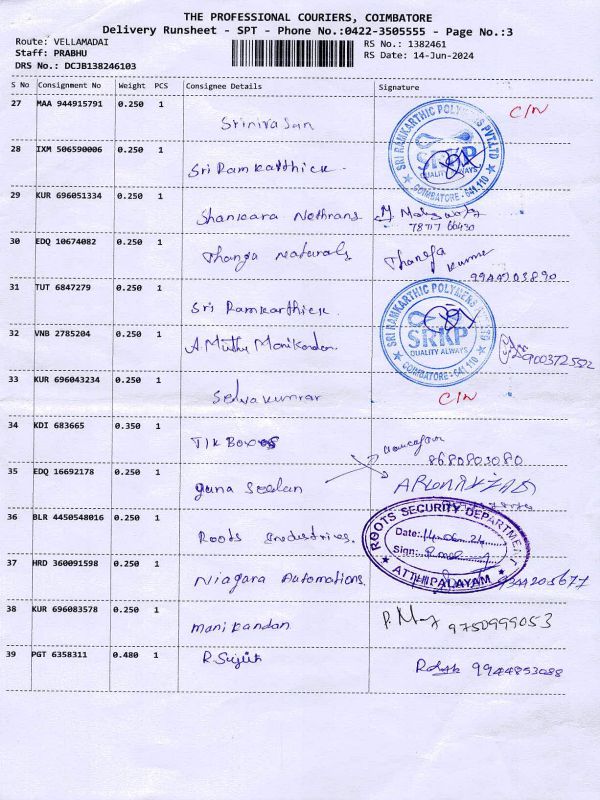 THE PROFESSIONAL COURIERS, COIMBATORE
Delivery Runsheet - SPT - Phone No.:0422-3505555 - Page No.:3
Route: VELLAMADAI RS No.: 1382461
Staff: PRABHU RS Date: 14-Jun-2024
DRS No.: DCJB138246103
S No Consignment No Weight PCS Consignee Details Signature
27 MAA 944915791 0.250 1 Srinivasan C/N
SRI RAMKARTHIC POLYMERS PVT.LTD SRKP QUALITY ALWAYS COIMBATORE - 641 110
28 IXM 506590006 0.250 1 Sri Ramkarthick.
29 KUR 696051334 0.250 1 Shankara Nethrans
78717 66430
30 EDQ 10674082 0.250 1 Thanga Naturals Thanga Kumar
9944203890
31 TUT 6847279 0.250 1 Sri Ramkarthick.
SRI RAMKARTHIC POLYMERS PVT.LTD SRKP QUALITY ALWAYS COIMBATORE - 641 110
32 VNB 2785204 0.250 1 A Muthu Manikandan
33 KUR 696043234 0.250 1 Selvakumar C/N
34 KDI 683665 0.350 1 TIK Boxes
8680803080
35 EDQ 16692178 0.250 1 Seelan
36 BLR 4450548016 0.250 1 Roots Industries.
ROOTS SECURITY DEPARTMENT
Date: 14.06.24
Sign:
ATTHIPALAYAM
37 HRD 360091598 0.250 1 Niagara Automations.
38 KUR 696083578 0.250 1 Manikandan 9750999053
39 PGT 6358311 0.480 1 R. Sujith 9944853088